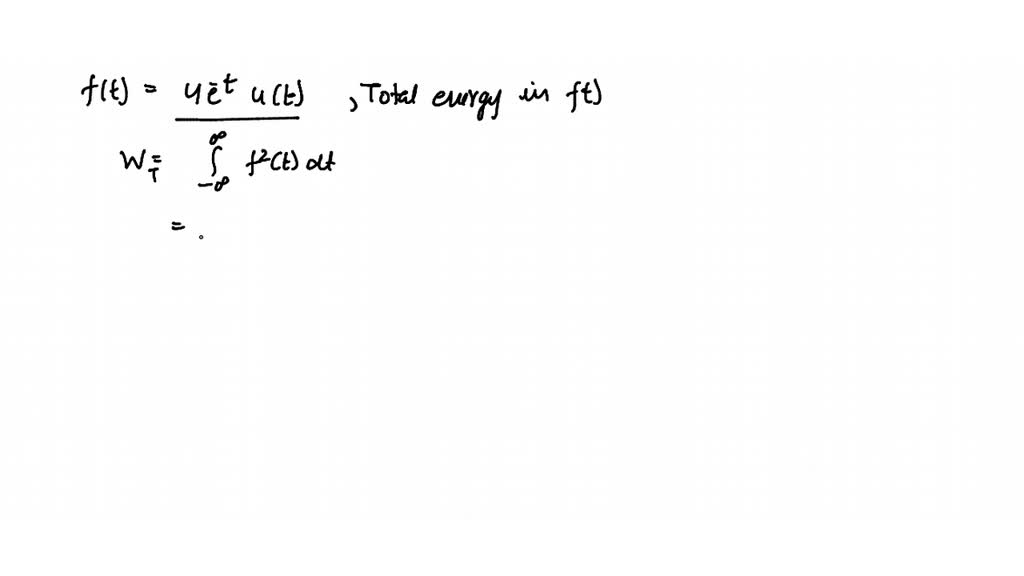 f(t) = 4e^-t u(t) , Total energy in ft)
W_T = ∫_-∞^∞ f²(t) dt
= .